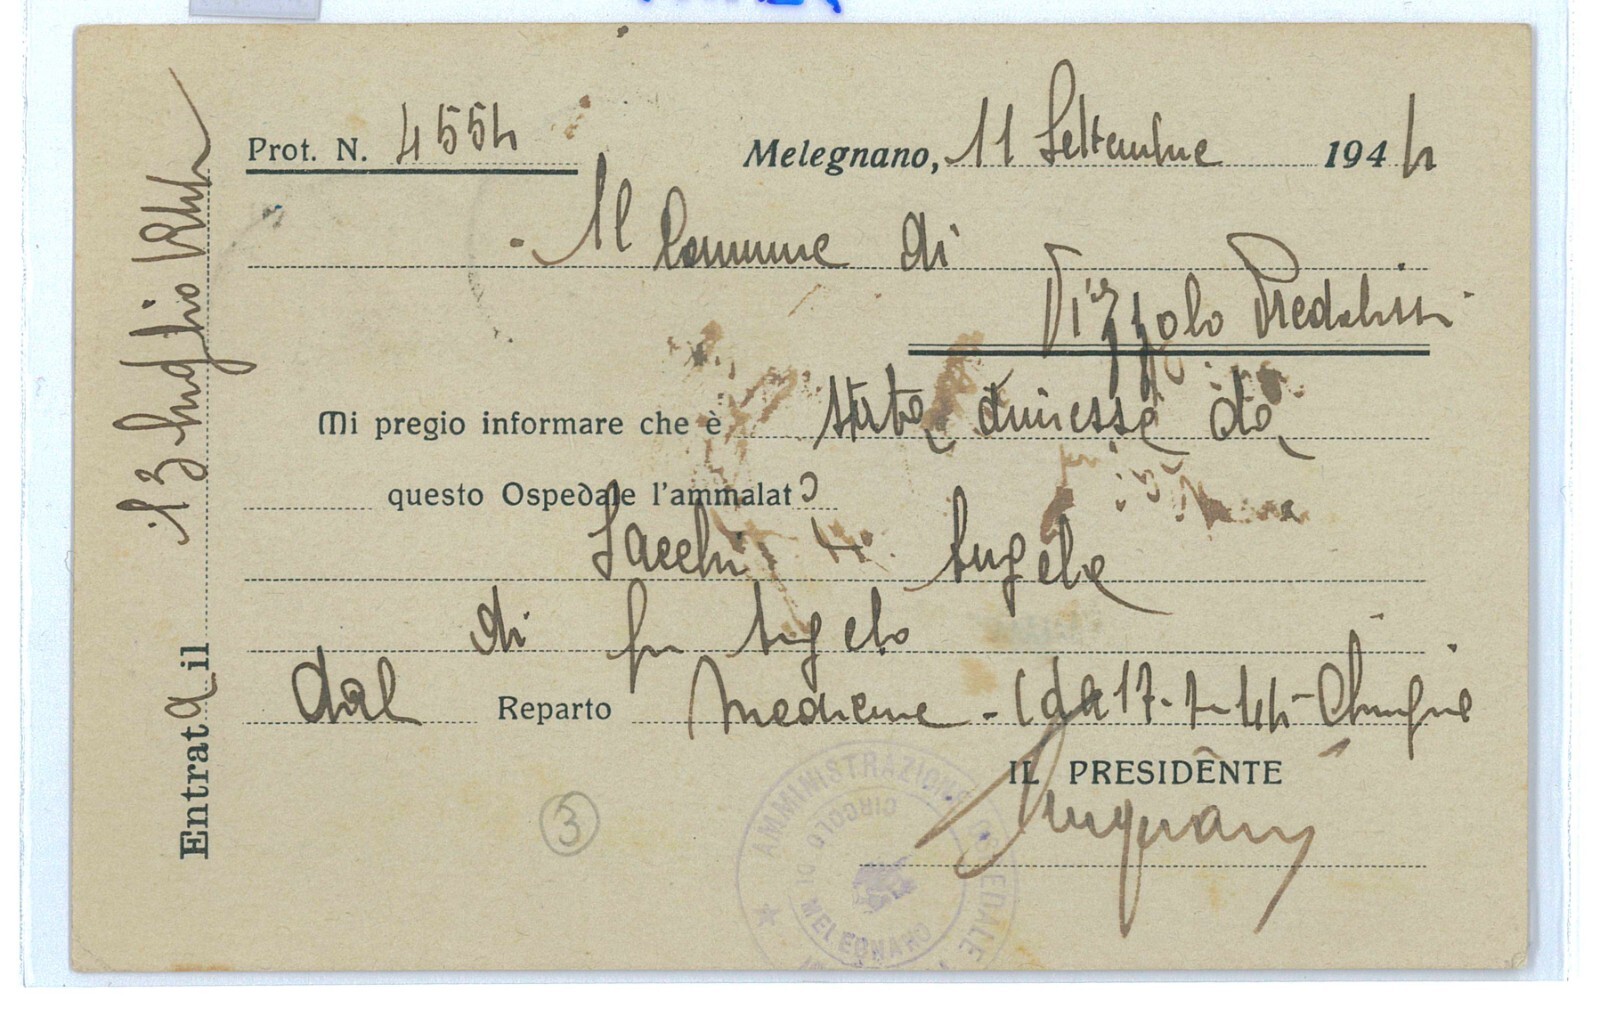 Prot. N. 4554
Melegnano, 11 Settembre 1944
Al Comune di
Vizzolo Predabissi
Mi pregio informare che è stata dimessa da
questo Ospedale l'ammalata
Sacchi Angela
di fu Angelo
dal Reparto Medicina - (dal 17-7-44 Chirurgia
IL PRESIDENTE
Entrata il 13 Luglio 1944
AMMINISTRAZIONE OSPEDALE
CIRCOLO DI
MELEGNANO
3